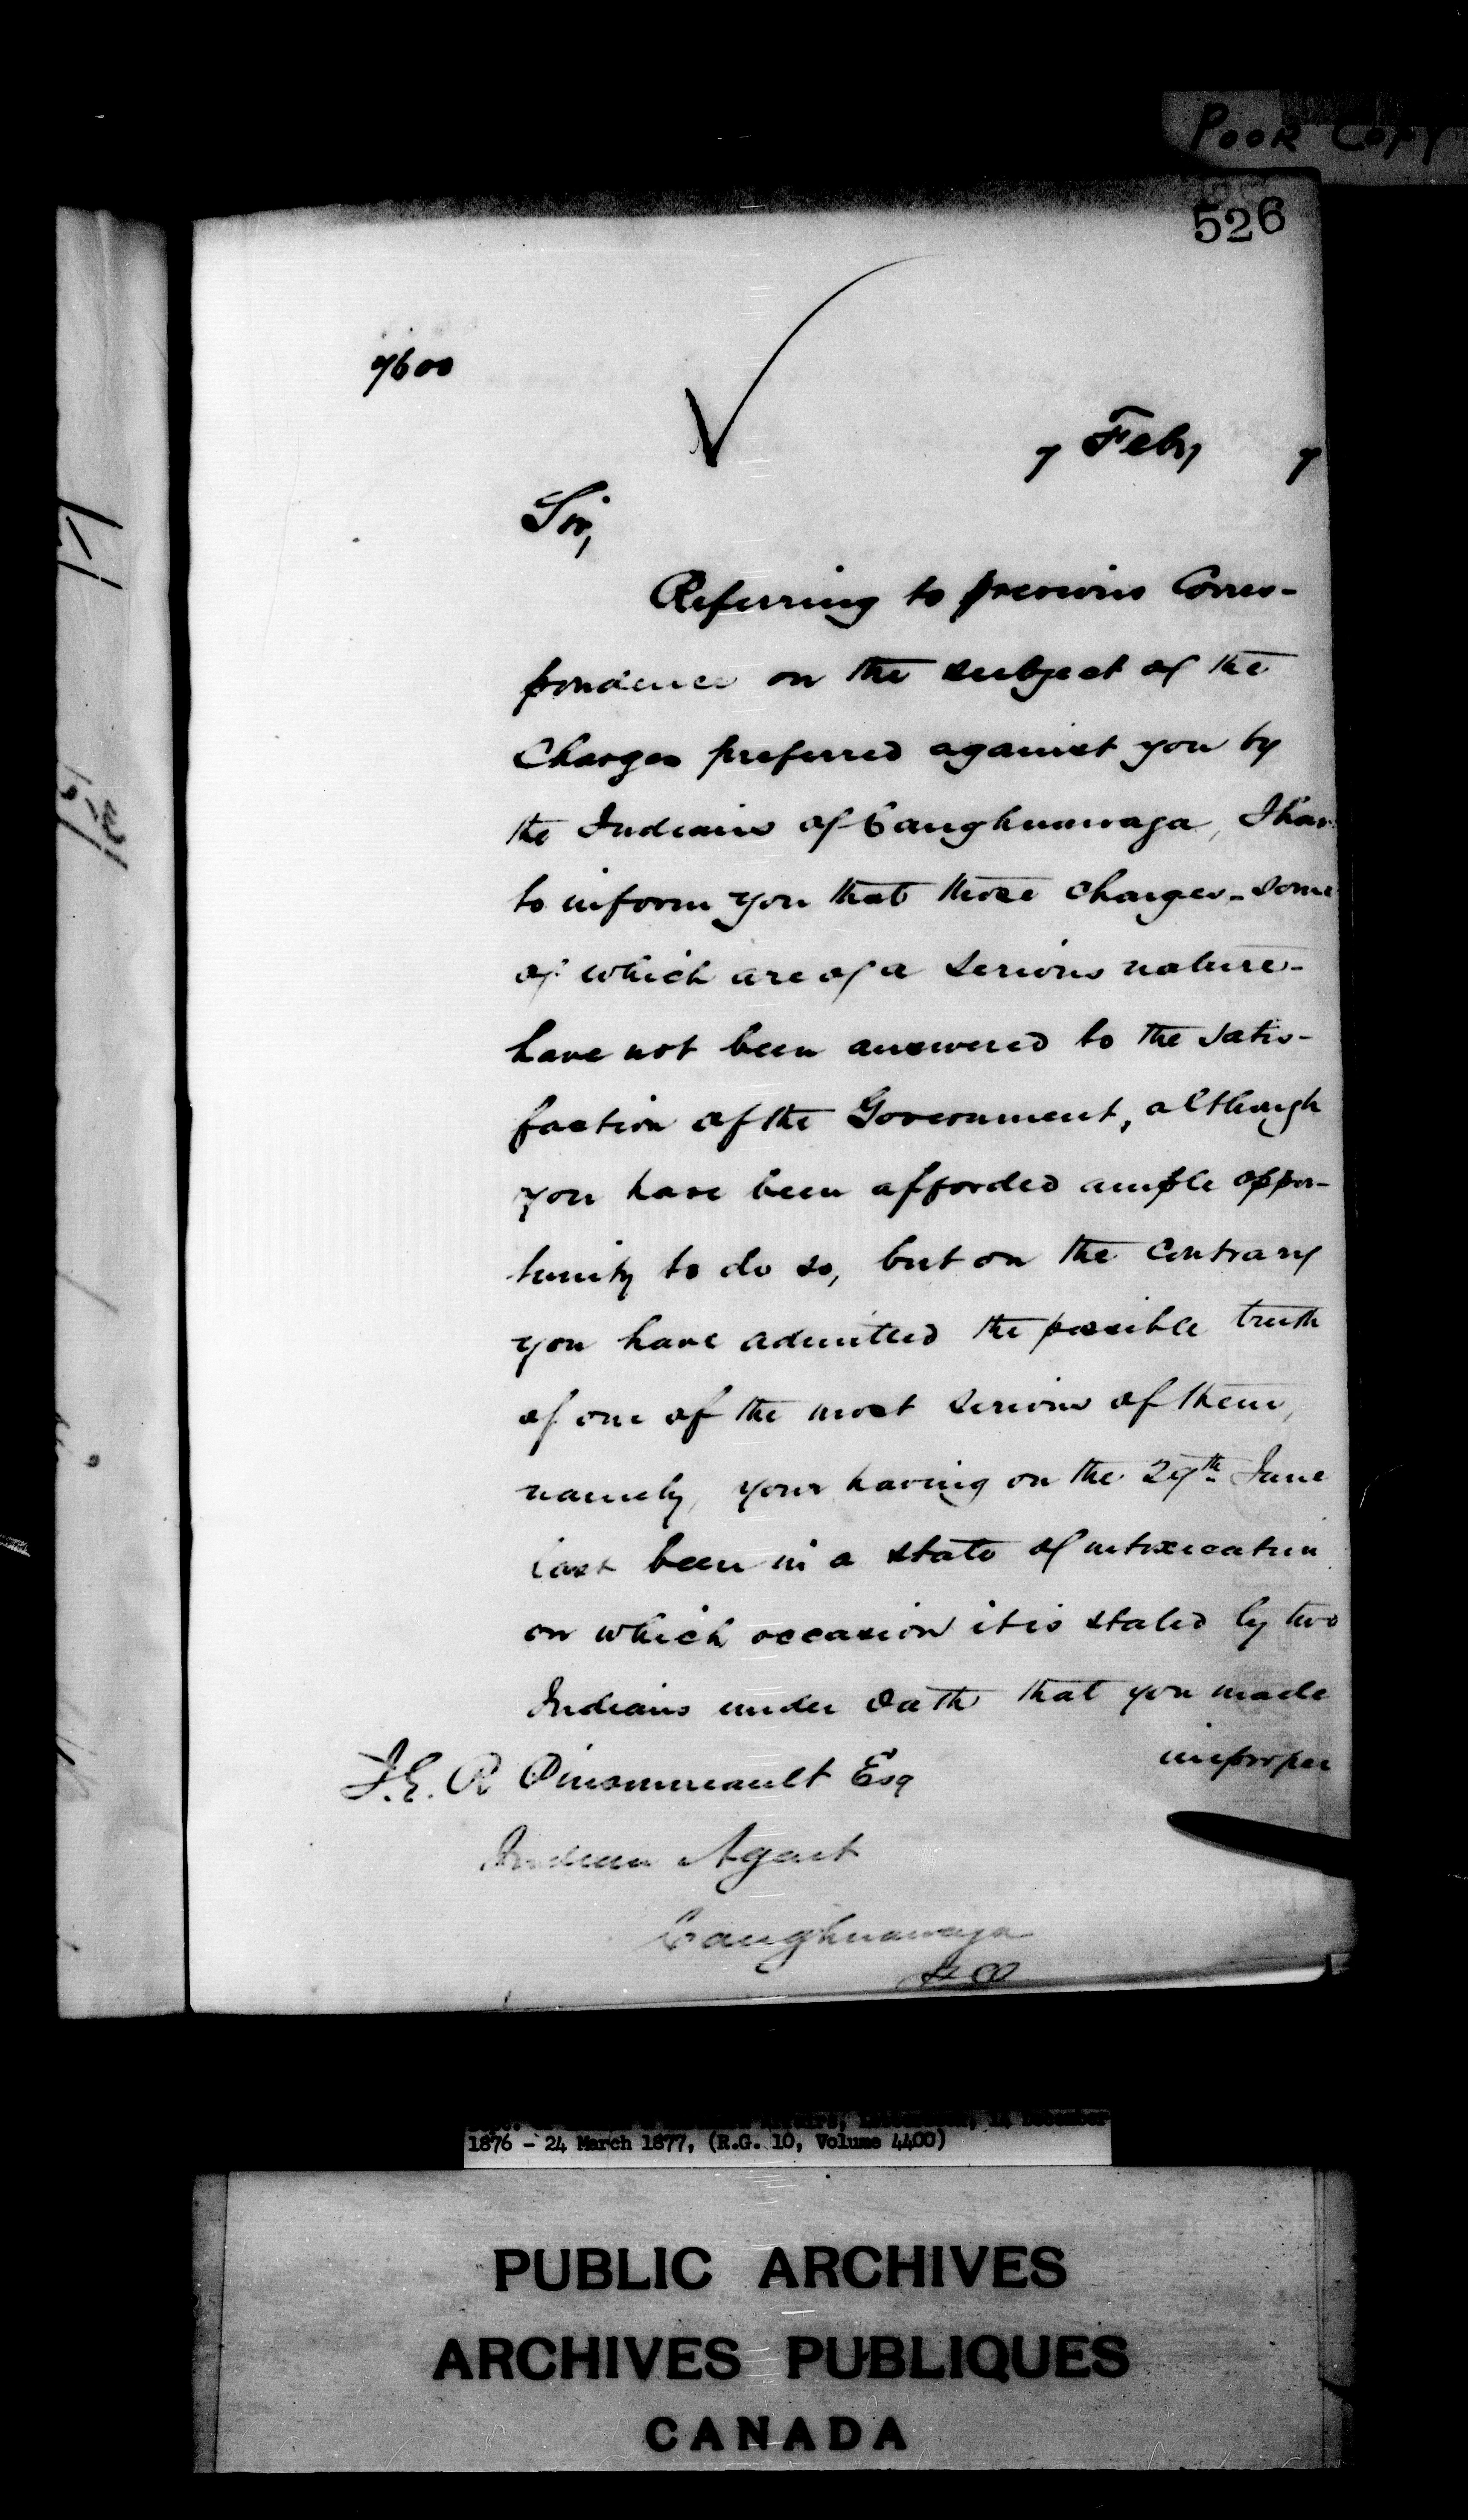 POOR COPY
526
7600
7 Feby 7
Sir,
Referring to previous Corres-
pondence on the subject of the
Charges preferred against you by
the Indians of Caughnawaga, I hav
to inform you that those charges - some
of which are of a serious nature -
have not been answered to the satis-
faction of the Government, although
you have been afforded ample oppor-
tunity to do so, but on the contrary
you have admitted the possible truth
of one of the most serious of them,
namely, your having on the 29th June
last been in a state of intoxication
on which occasion it is stated by two
Indians under oath that you made
improper
J. E. R Pinsonneault Esq
Indian Agent
Caughnawaga
P.Q.
1876 - 24 March 1877, (R.G. 10, Volume 4400)
PUBLIC ARCHIVES
ARCHIVES PUBLIQUES
CANADA